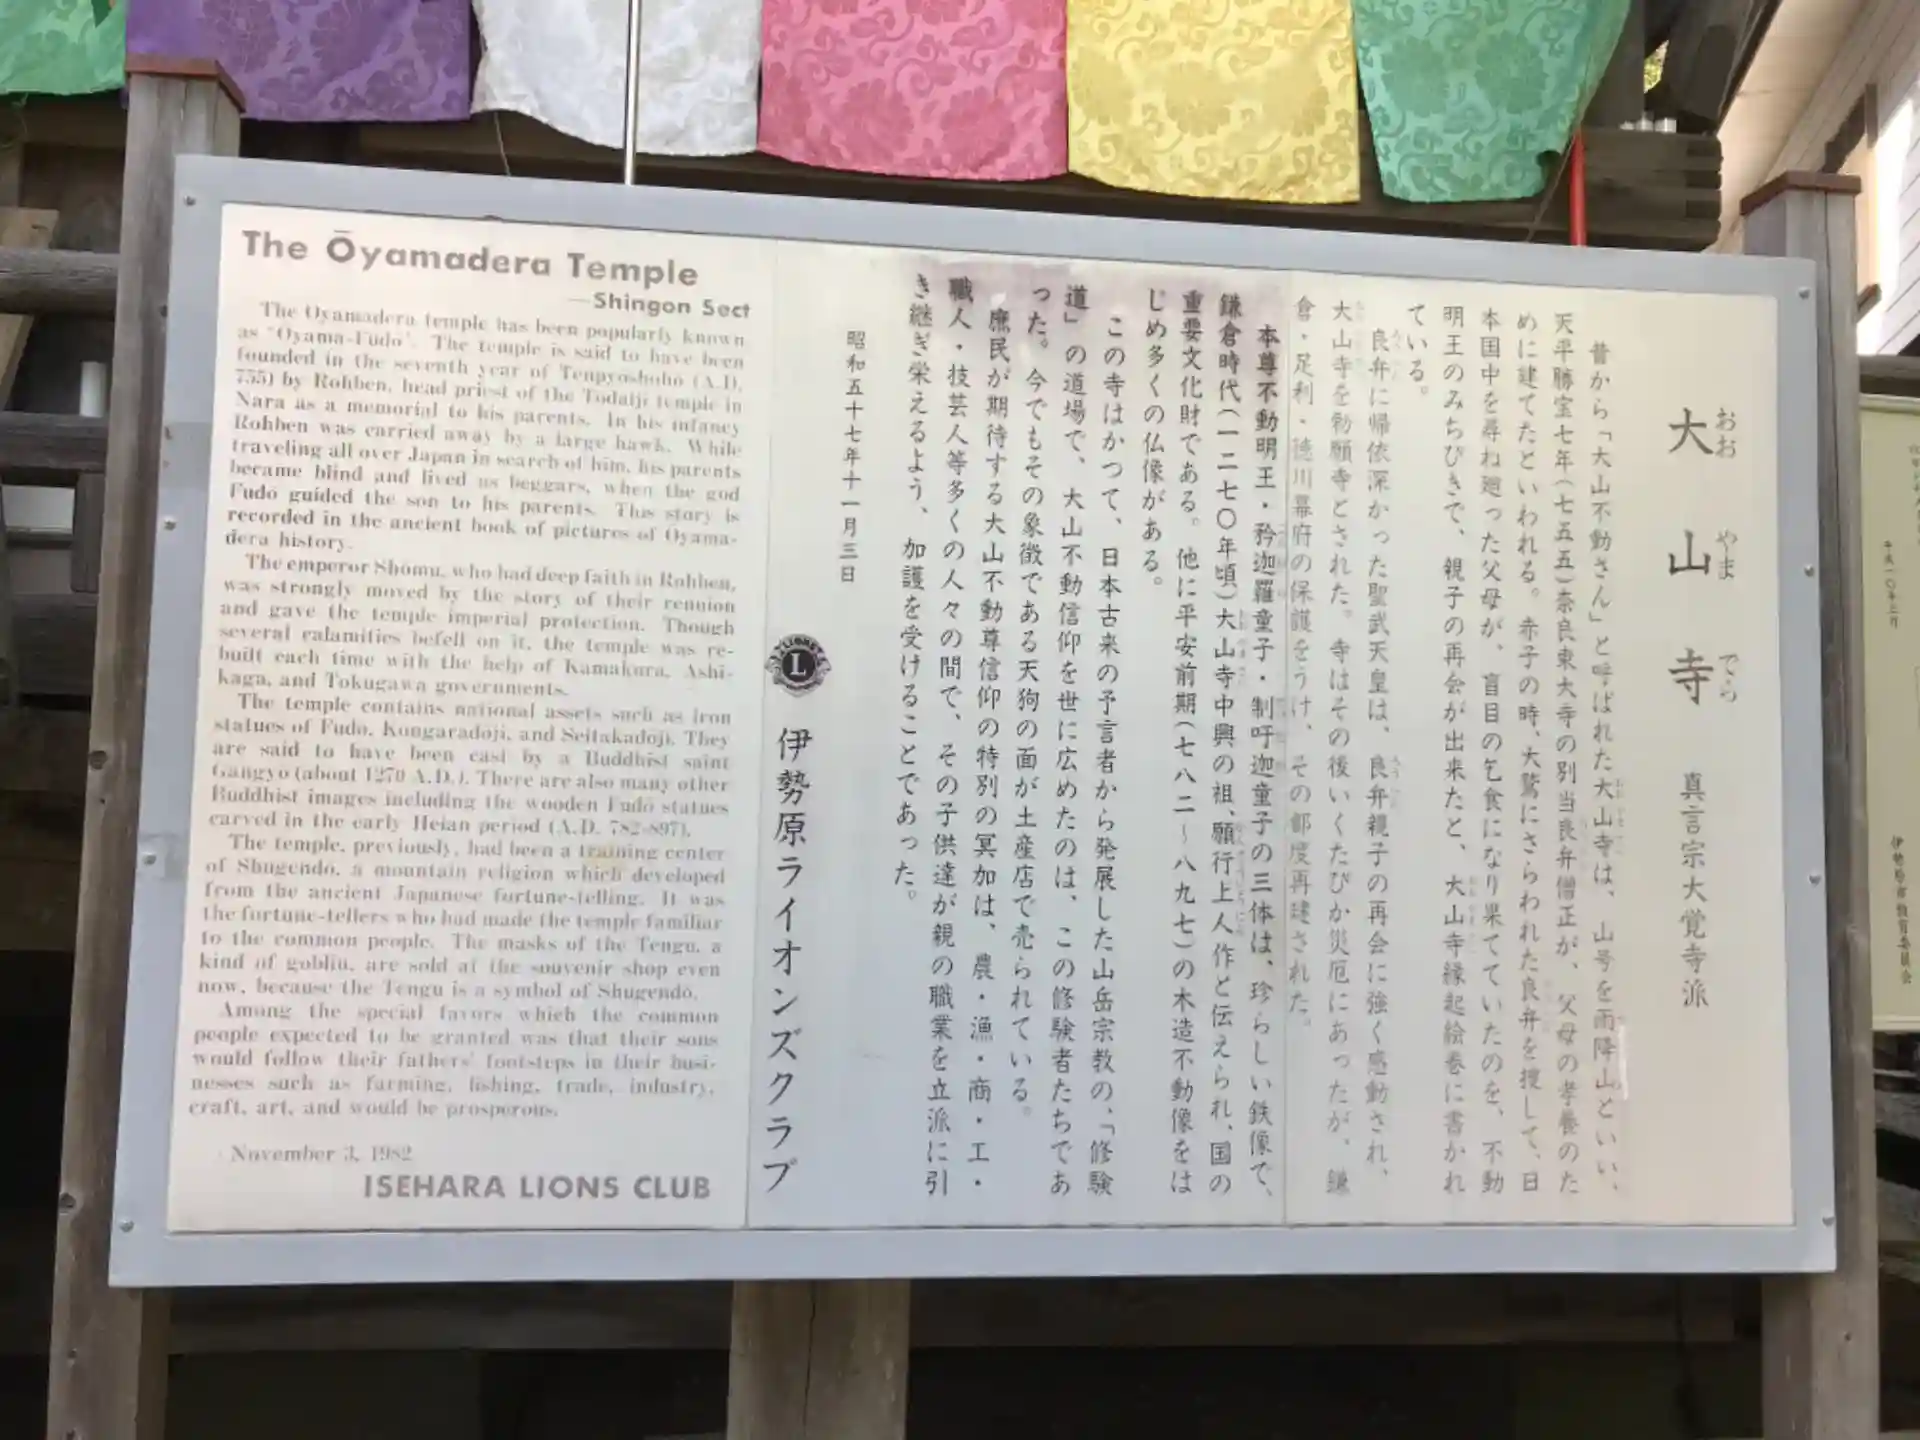 The Ōyamadera Temple
—Shingon Sect
The Ōyamadera temple has been popularly known
as "Oyama-Fudō". The temple is said to have been
founded in the seventh year of Tenpyoshohō (A.D.
755) by Rohben, head priest of the Todaiji temple in
Nara as a memorial to his parents. In his infancy
Rohben was carried away by a large hawk. While
traveling all over Japan in search of him, his parents
became blind and lived as beggars, when the god
Fudō guided the son to his parents. This story is
recorded in the ancient book of pictures of Ōyama-
dera history.
The emperor Shōmu, who had deep faith in Rohben,
was strongly moved by the story of their reunion
and gave the temple imperial protection. Though
several calamities befell on it, the temple was re-
built each time with the help of Kamakura, Ashi-
kaga, and Tokugawa governments.
The temple contains national assets such as iron
statues of Fudo, Kongaradoji, and Seitakadoji. They
are said to have been cast by a Buddhist saint
Gangyo (about 1270 A.D.). There are also many other
Buddhist images including the wooden Fudō statues
carved in the early Heian period (A.D. 782-897).
The temple, previously, had been a training center
of Shugendō, a mountain religion which developed
from the ancient Japanese fortune-telling. It was
the fortune-tellers who had made the temple familiar
to the common people. The masks of the Tengu, a
kind of goblin, are sold at the souvenir shop even
now, because the Tengu is a symbol of Shugendō.
Among the special favors which the common
people expected to be granted was that their sons
would follow their fathers' footsteps in their busi-
nesses such as farming, fishing, trade, industry,
craft, art, and would be prosperous.
November 3, 1982
ISEHARA LIONS CLUB
大山寺 真言宗大覚寺派
おお やま でら
昔から「大山不動さん」と呼ばれた大山寺は、山号を雨降山といい、
天平勝宝七年(七五五)奈良東大寺の別当良弁僧正が、父母の孝養のた
めに建てたといわれる。赤子の時、大鷲にさらわれた良弁を捜して、日
本国中を尋ね廻った父母が、盲目の乞食になり果てていたのを、不動
明王のみちびきで、親子の再会が出来たと、大山寺縁起絵巻に書かれ
ている。
良弁に帰依深かった聖武天皇は、良弁親子の再会に強く感動され、
大山寺を勅願寺とされた。寺はその後いくたびか災厄にあったが、鎌
倉・足利・徳川幕府の保護をうけ、その都度再建された。
本尊不動明王・矜迦羅童子・制吒迦童子の三体は、珍らしい鉄像で、
鎌倉時代(一二七〇年頃)大山寺中興の祖、願行上人作と伝えられ、国の
重要文化財である。他に平安前期(七八二〜八九七)の木造不動像をは
じめ多くの仏像がある。
この寺はかつて、日本古来の予言者から発展した山岳宗教の、「修験
道」の道場で、大山不動信仰を世に広めたのは、この修験者たちであ
った。今でもその象徴である天狗の面が土産店で売られている。
庶民が期待する大山不動尊信仰の特別の冥加は、農・漁・商・工・
職人・技芸人等多くの人々の間で、その子供達が親の職業を立派に引
き継ぎ栄えるよう、加護を受けることであった。
昭和五十七年十一月三日
LIONS
L
伊勢原ライオンズクラブ
伊勢原市教育委員会